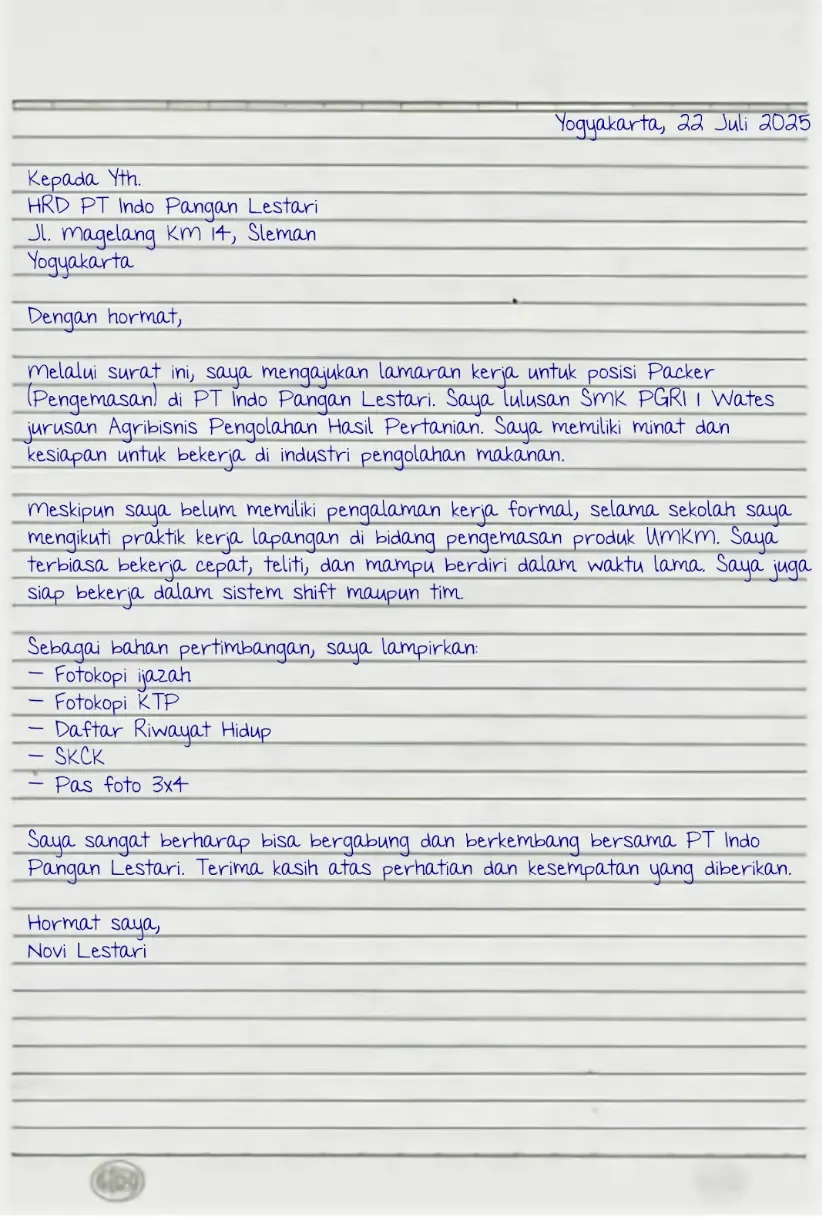 Yogyakarta, 22 Juli 2025
Kepada Yth.
HRD PT Indo Pangan Lestari
Jl. Magelang KM 14, Sleman
Yogyakarta
Dengan hormat,
Melalui surat ini, saya mengajukan lamaran kerja untuk posisi Packer
(Pengemasan) di PT Indo Pangan Lestari. Saya lulusan SMK PGRI 1 Wates
jurusan Agribisnis Pengolahan Hasil Pertanian. Saya memiliki minat dan
kesiapan untuk bekerja di industri pengolahan makanan.
Meskipun saya belum memiliki pengalaman kerja formal, selama sekolah saya
mengikuti praktik kerja lapangan di bidang pengemasan produk UMKM. Saya
terbiasa bekerja cepat, teliti, dan mampu berdiri dalam waktu lama. Saya juga
siap bekerja dalam sistem shift maupun tim.
Sebagai bahan pertimbangan, saya lampirkan:
– Fotokopi ijazah
– Fotokopi KTP
– Daftar Riwayat Hidup
– SKCK
– Pas foto 3x4
Saya sangat berharap bisa bergabung dan berkembang bersama PT Indo
Pangan Lestari. Terima kasih atas perhatian dan kesempatan yang diberikan.
Hormat saya,
Novi Lestari